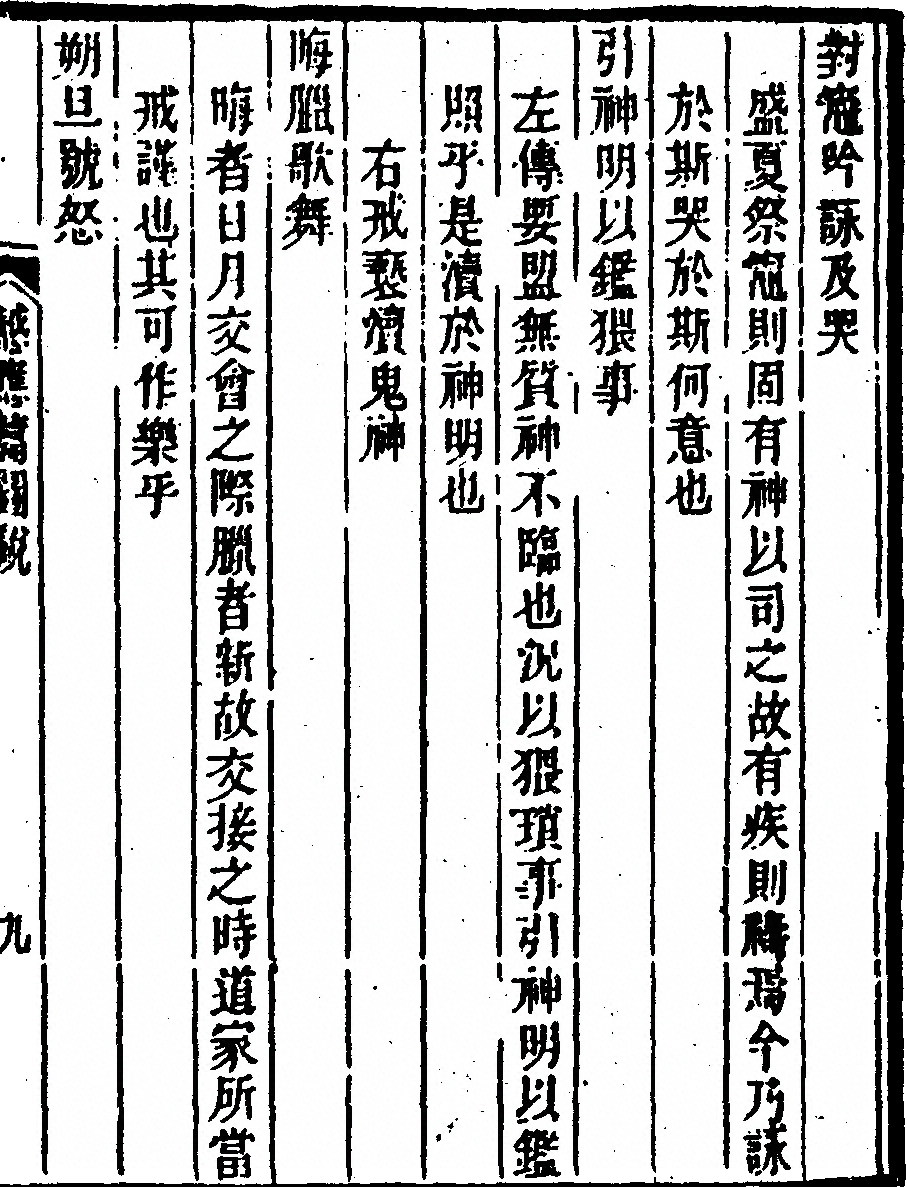 對竈吟詠及哭
盛夏祭竈則固有神以司之故有疾則禱焉今乃詠
於斯哭於斯何意也
引神明以鑑猥事
左傳要盟無質神不臨也況以猥瑣事引神明以鑑
照乎是瀆於神明也
右戒褻瀆鬼神
晦臘歌舞
晦者日月交會之際臘者新故交接之時道家所當
戒謹也其可作樂乎
朔旦號怒
感應篇圖說
九